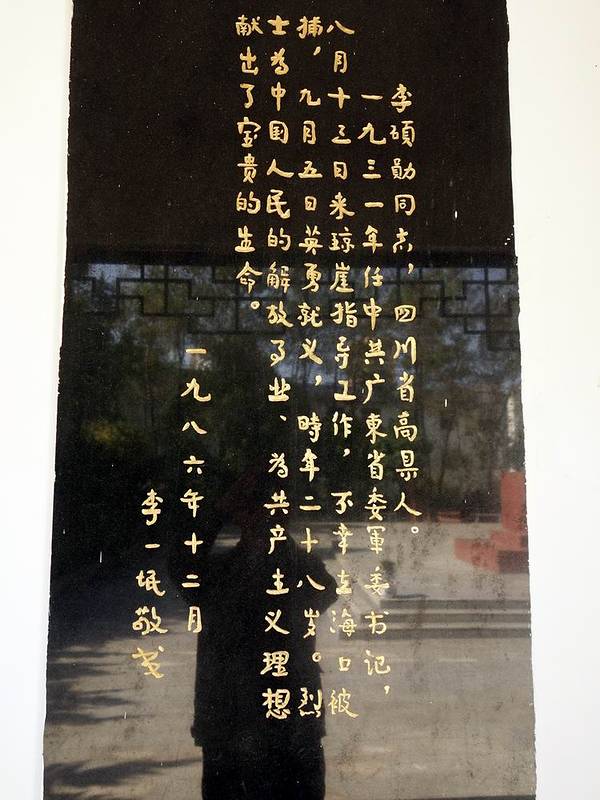 李硕勋同志，四川省高県人。
一九三一年任中共广東省委軍委书记，
八月十三日来琼崖指导工作，不幸在海口被
捕，九月五日英勇就义，時年二十八岁。烈
士为中国人民的解放事业、为共产主义理想
献出了宝贵的生命。
一九八六年十二月
李一氓敬書